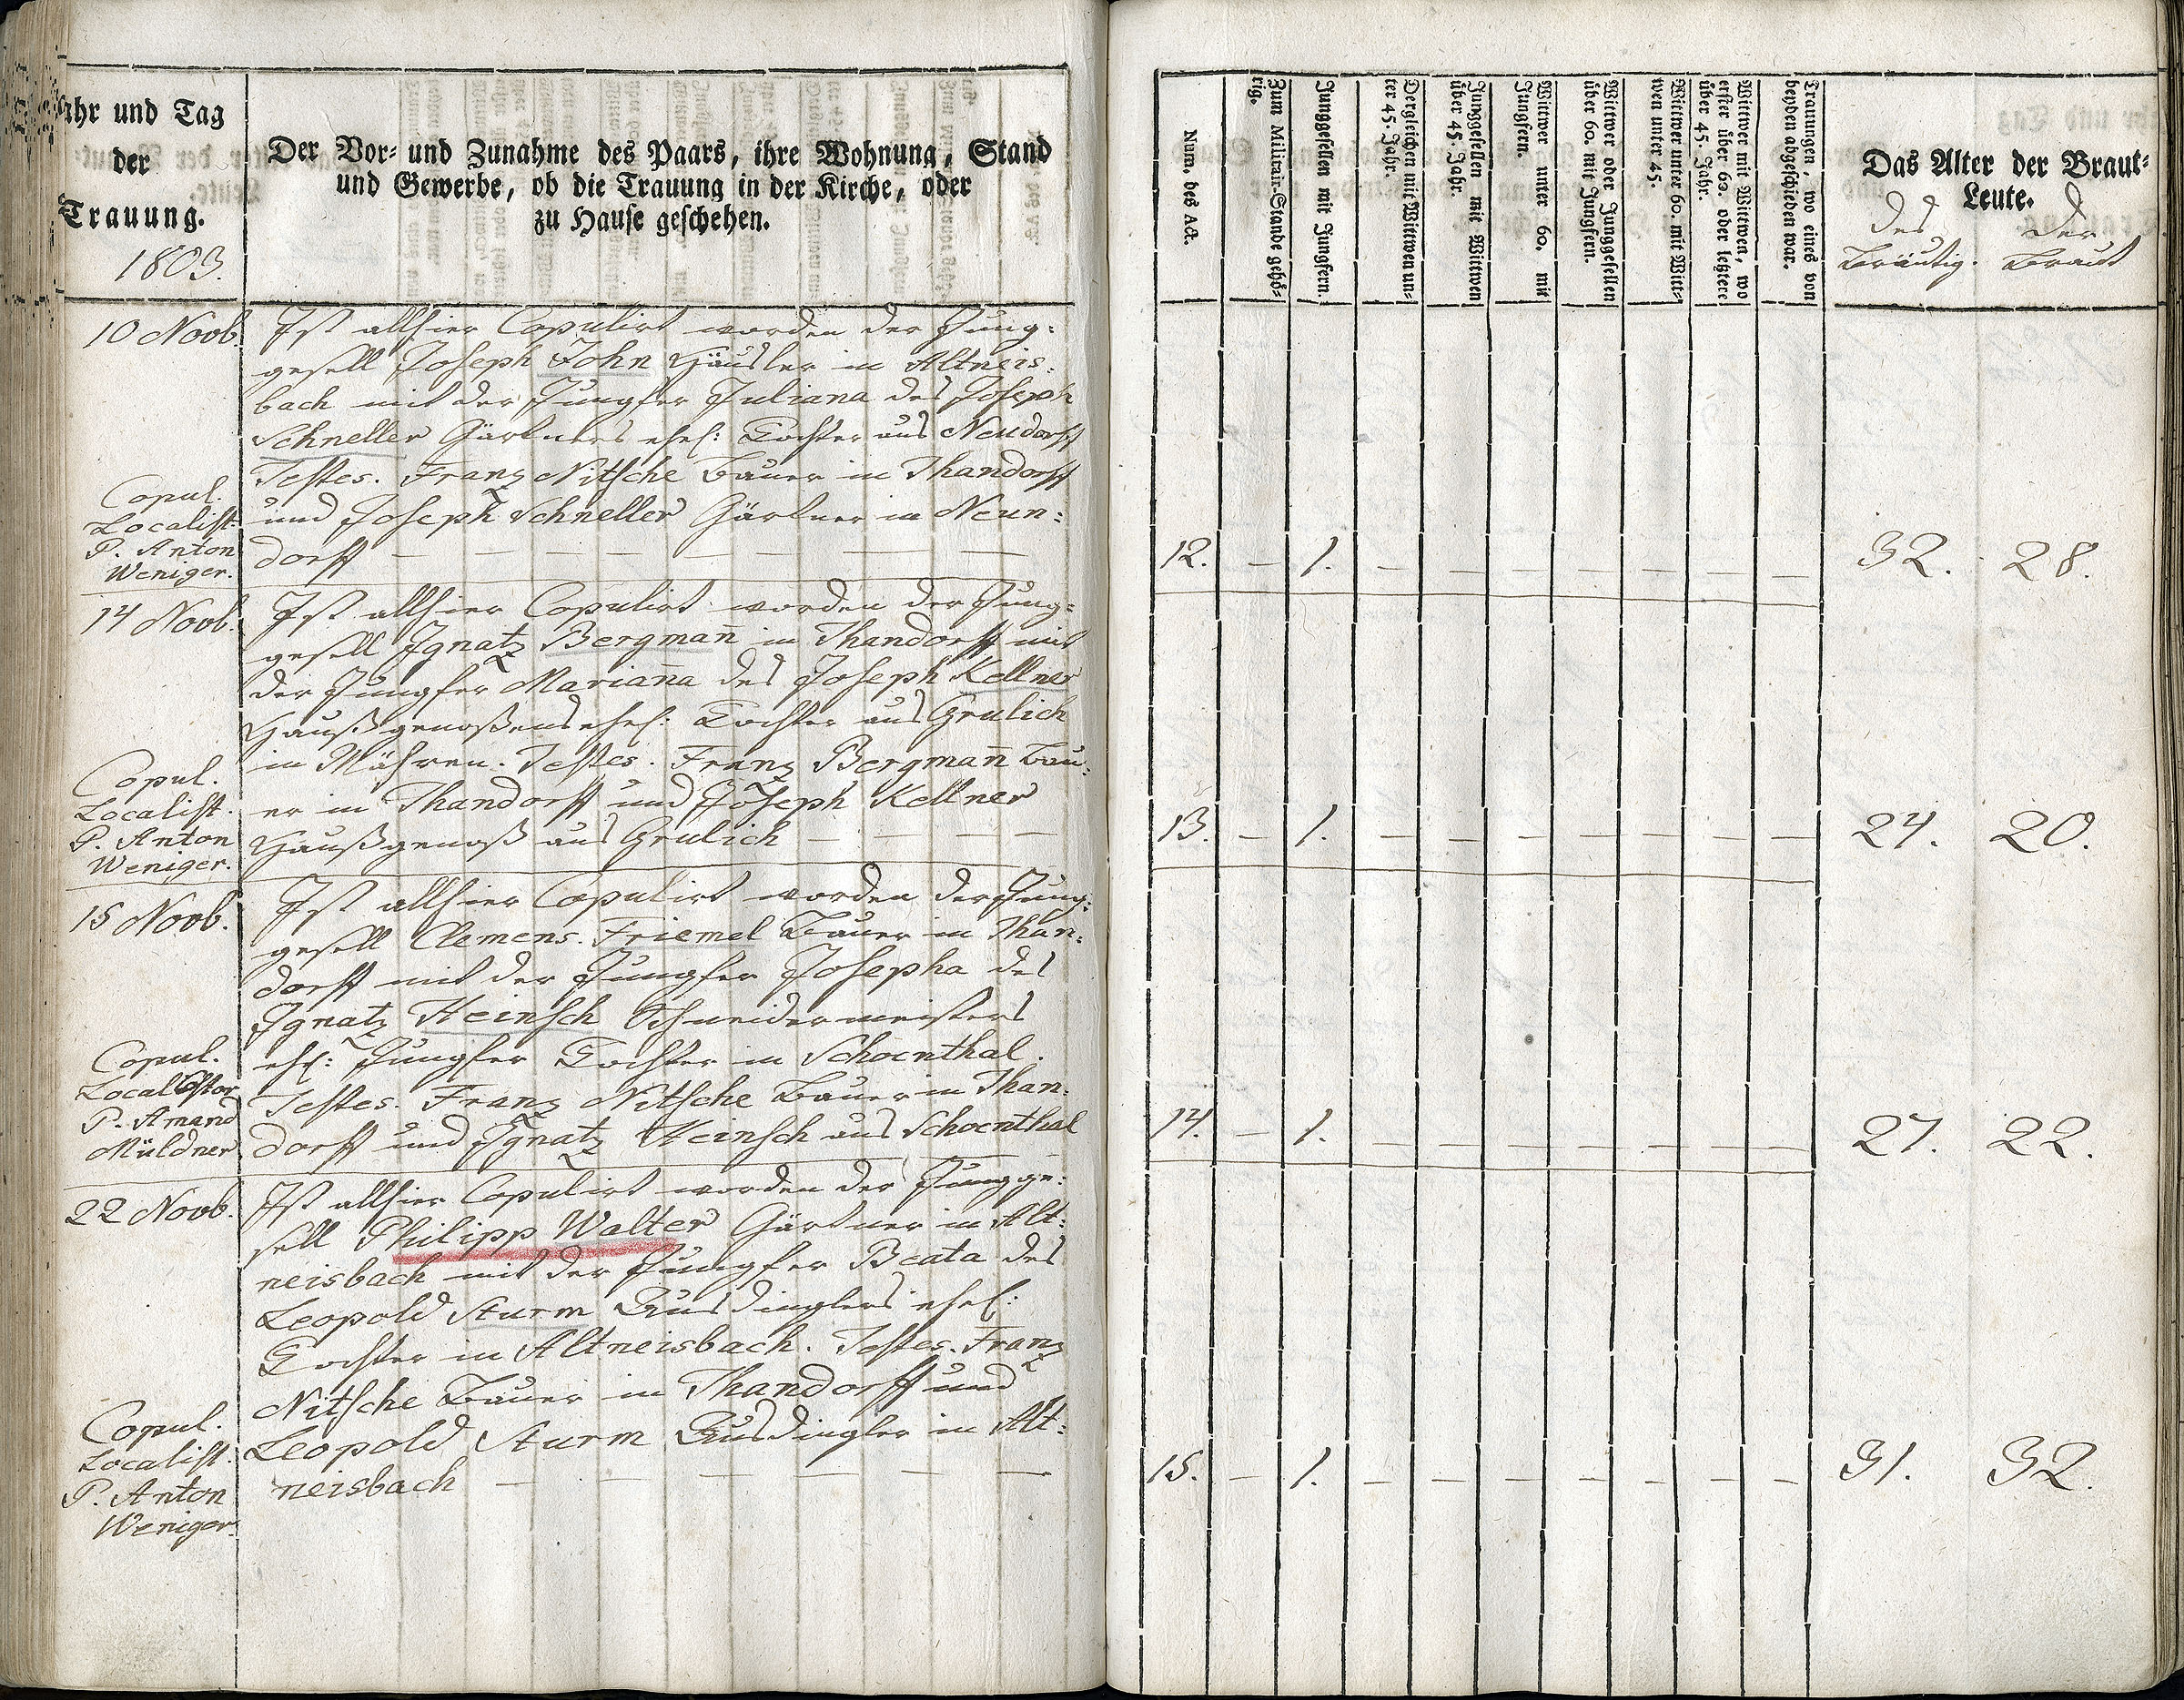 Jahr und Tag
der
Trauung.
1803.
Der Vor- und Zunahme des Paars, ihre Wohnung, Stand
und Gewerbe, ob die Trauung in der Kirche, oder
zu Hause geschehen.
10 Novb.
Ist allhier Copulirt worden der Jung:
gesell Joseph John Häusler in Altneis:
bach mit der Jungfer Juliana des Joseph
Schneller Gärtners ehel: Tochter aus Neudorff
Testes. Franz Nitsche Bauer in Thandorff
und Joseph Schneller Gärtner in Neun:
dorff
Copul.
Localist.
P. Anton
Weniger.
14 Novb.
Ist allhier Copulirt worden der Jung=
gesell Ignatz Bergman̄ in Thandorff mit
der Jungfer Marian̄a des Joseph Kellner
Haußgenoßens ehel: Tochter aus Grulich
in Mähren. Testes. Franz Bergman̄ Bau:
er in Thandorff und Joseph Kellner
Haußgenoß aus Grulich
Copul.
Localist.
P. Anton
Weniger.
15 Novb.
Ist allhier Copulirt worden der Jung:
gesell Clemens. Friemel Bauer in Than:
dorff mit der Jungfer Josepha des
Ignatz Heinsch Schneidermeisters
ehl: Jungfer Tochter in Schoenthal.
Testes. Franz Nitsche Bauer in Than:
dorff und Ignatz Heinsch aus Schoenthal
Copul.
P. Amand
Müldner
22 Novb.
Ist allhier Copulirt worden der Jungge:
sell Philipp Walter Gärtner in Alt:
neisbach mit der Jungfer Beata des
Leopold Sturm Ausdinglers ehel:
Tochter in Altneisbach. Testes. Franz
Nitsche Bauer in Thandorff und
Leopold Sturm Ausdingler in Alt:
neisbach
Copul.
Localist.
P. Anton
Weniger.
Num. des Act.
Zum Militair-Stande gehö-
rig.
Junggesellen mit Jungfern.
Dergleichen mit Wittwen un-
ter 45. Jahr.
Junggesellen mit Wittwen
über 45. Jahr.
Wittwer unter 60. mit
Jungfern.
Wittwer oder Junggesellen
über 60. mit Jungfern.
Wittwer unter 60. mit Witt-
wen unter 45.
Wittwer mit Wittwen, wo
erster über 60. oder letztere
über 45. Jahr.
Trauungen, wo eines von
beyden abgeschieden war.
Das Alter der Braut-
Leute.
des
Bräutig.
der
Braut
12. — 1. — — — — — — — 32. 28.
13. — 1. — — — — — — — 24. 20.
14. — 1. — — — — — — — 27. 22.
15. — 1. — — — — — — — 31. 32.